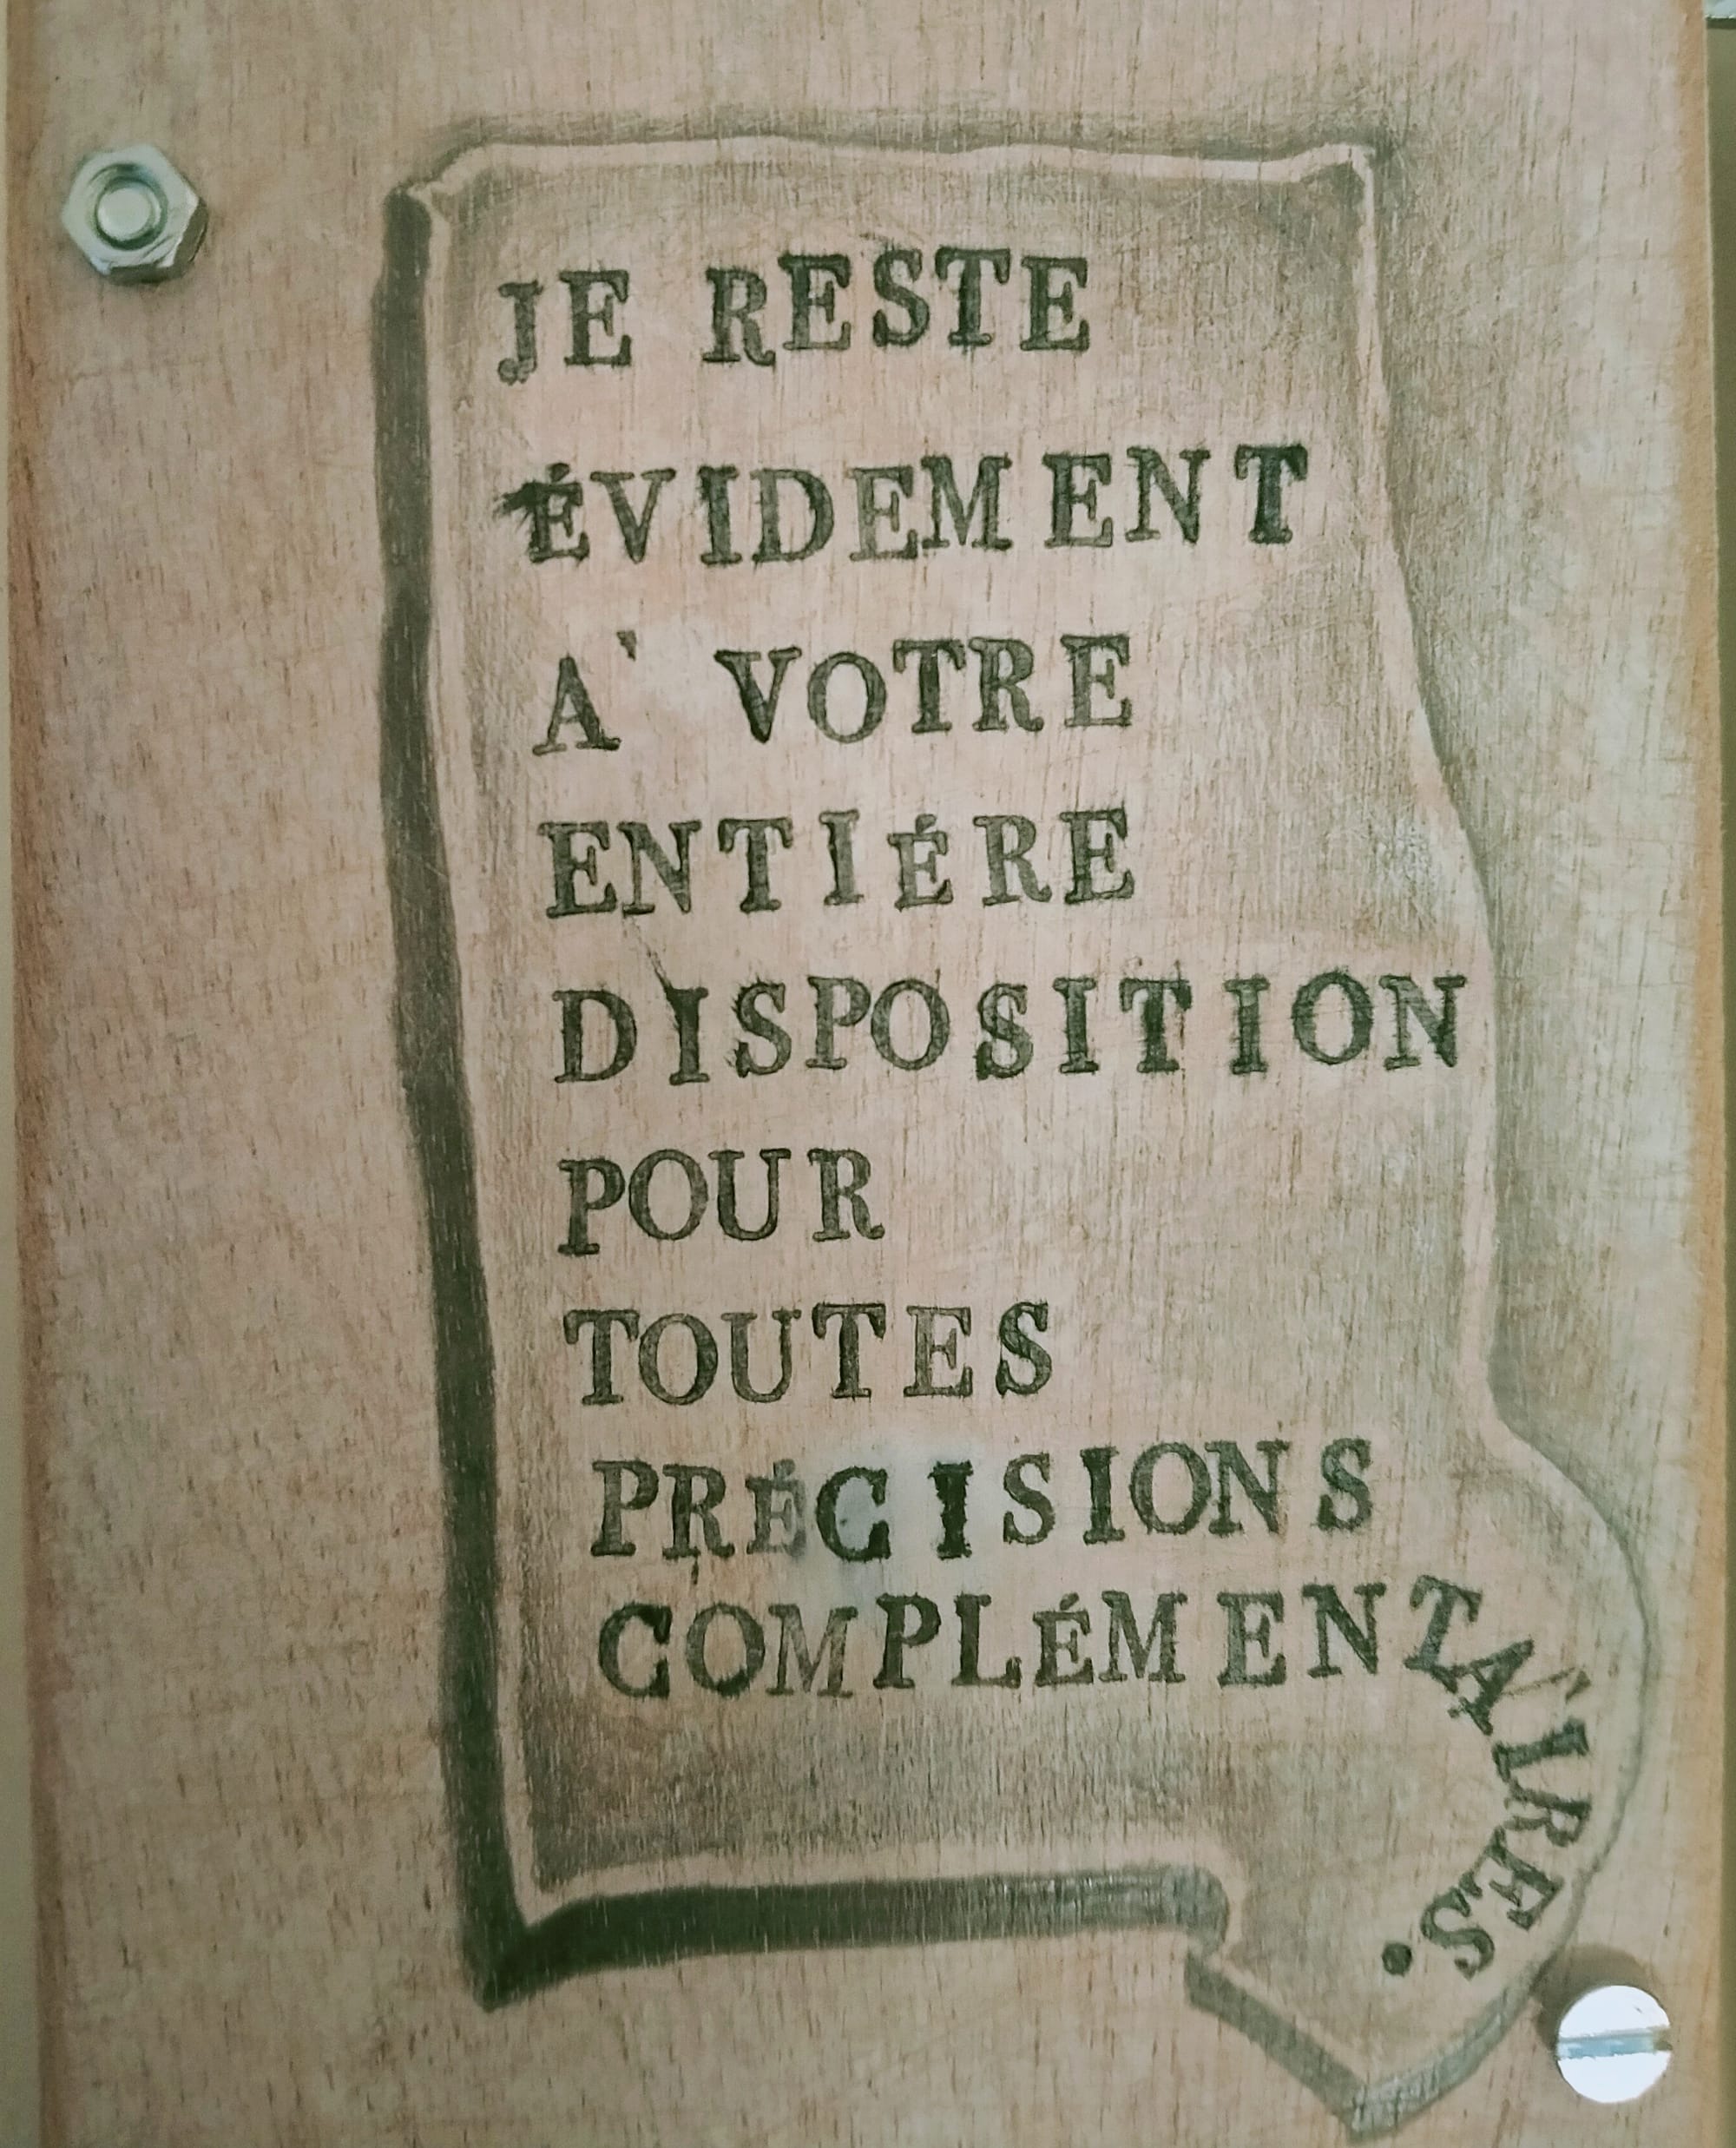 JE RESTE
ÉVIDEMENT
À VOTRE
ENTIÉRE
DISPOSITION
POUR
TOUTES
PRÉCISIONS
COMPLÉMENTAIRES.